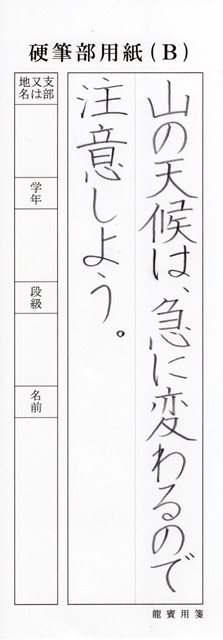 硬筆部用紙(B)
山の天候は、急に変わるので
注意しよう。
支部
又は
地名
学年
段級
名前
龍賓用箋